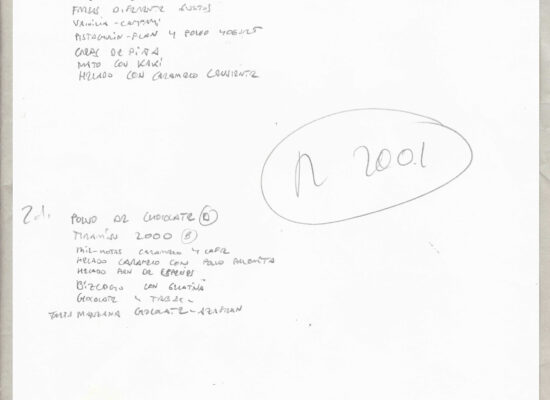 FRESAS DIFERENTE GUSTOS
VAINILLA - CAMPARI
PISTACHIO - FLAN Y POLVO YOGURT
CAPAS DE PIÑA
MATO CON KAKI
HELADO CON CARAMELO CALIENTE
2001
2d.
POLVO DE CHOCOLATE A
TIRAMISU 2000 B
MIL-HOJAS CARAMELO Y CAFE
HELADO CARAMELO CON POLVO
HELADO PAN DE ESPECIES
BIZCOCHO CON GELATINA
CHOCOLATE Y TABAC
TARTA MANZANA CHOCOLATE - AZAFRAN